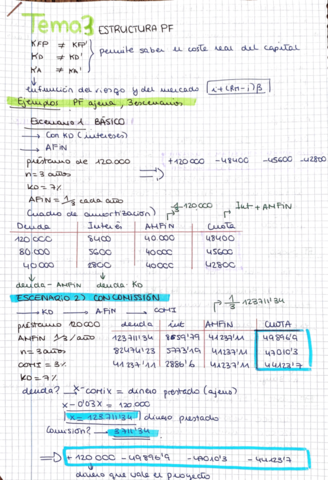 Tema3 ESTRUCTURA PF
KFP ≠ KFP'
KD ≠ KD' permite saber el coste real del capital
KA ≠ KA'
en función del riesgo y del mercado i+(Rn-i)β
Ejemplos PF ajena, 3 escenarios
Escenario 1 BÁSICO
→ Con KD (intereses)
→ AFIN
préstamo de 120.000 ⇒ +120 000 -48400 -45600 -42800
n = 3 años
KD = 7%
AFIN = 1/3 cada año
Cuadro de amortización) 1/3 120.000 Int + AMFIN
Deuda Interés AMFIN Cuota
120 000 8400 40 000 48400
80 000 5600 40 000 45600
40 000 2800 40 000 42800
deuda - AMFIN deuda · KD
ESCENARIO 2) CON COMISSIÓN
→ KD → AFIN → COMI 1/3 123711'34
préstamo 120000 deuda int AMFIN CUOTA
AMFIN 1/3/año 123711'34 8659'79 41237'11 49896'9
n = 3 años 82474'23 5773'19 41237'11 47010'3
COMIS = 3% 41237'11 2886'6 41237'11 44123'7
KD = 7%
deuda? → x - comix = dinero prestado (ajeno)
x - 0'03x = 120.000
x = 123711'34 dinero prestado
Comisión? → 3711'34
⇒ +120 000 - 49896'9 - 47010'3 - 44123'7
dinero que vale el proyecto